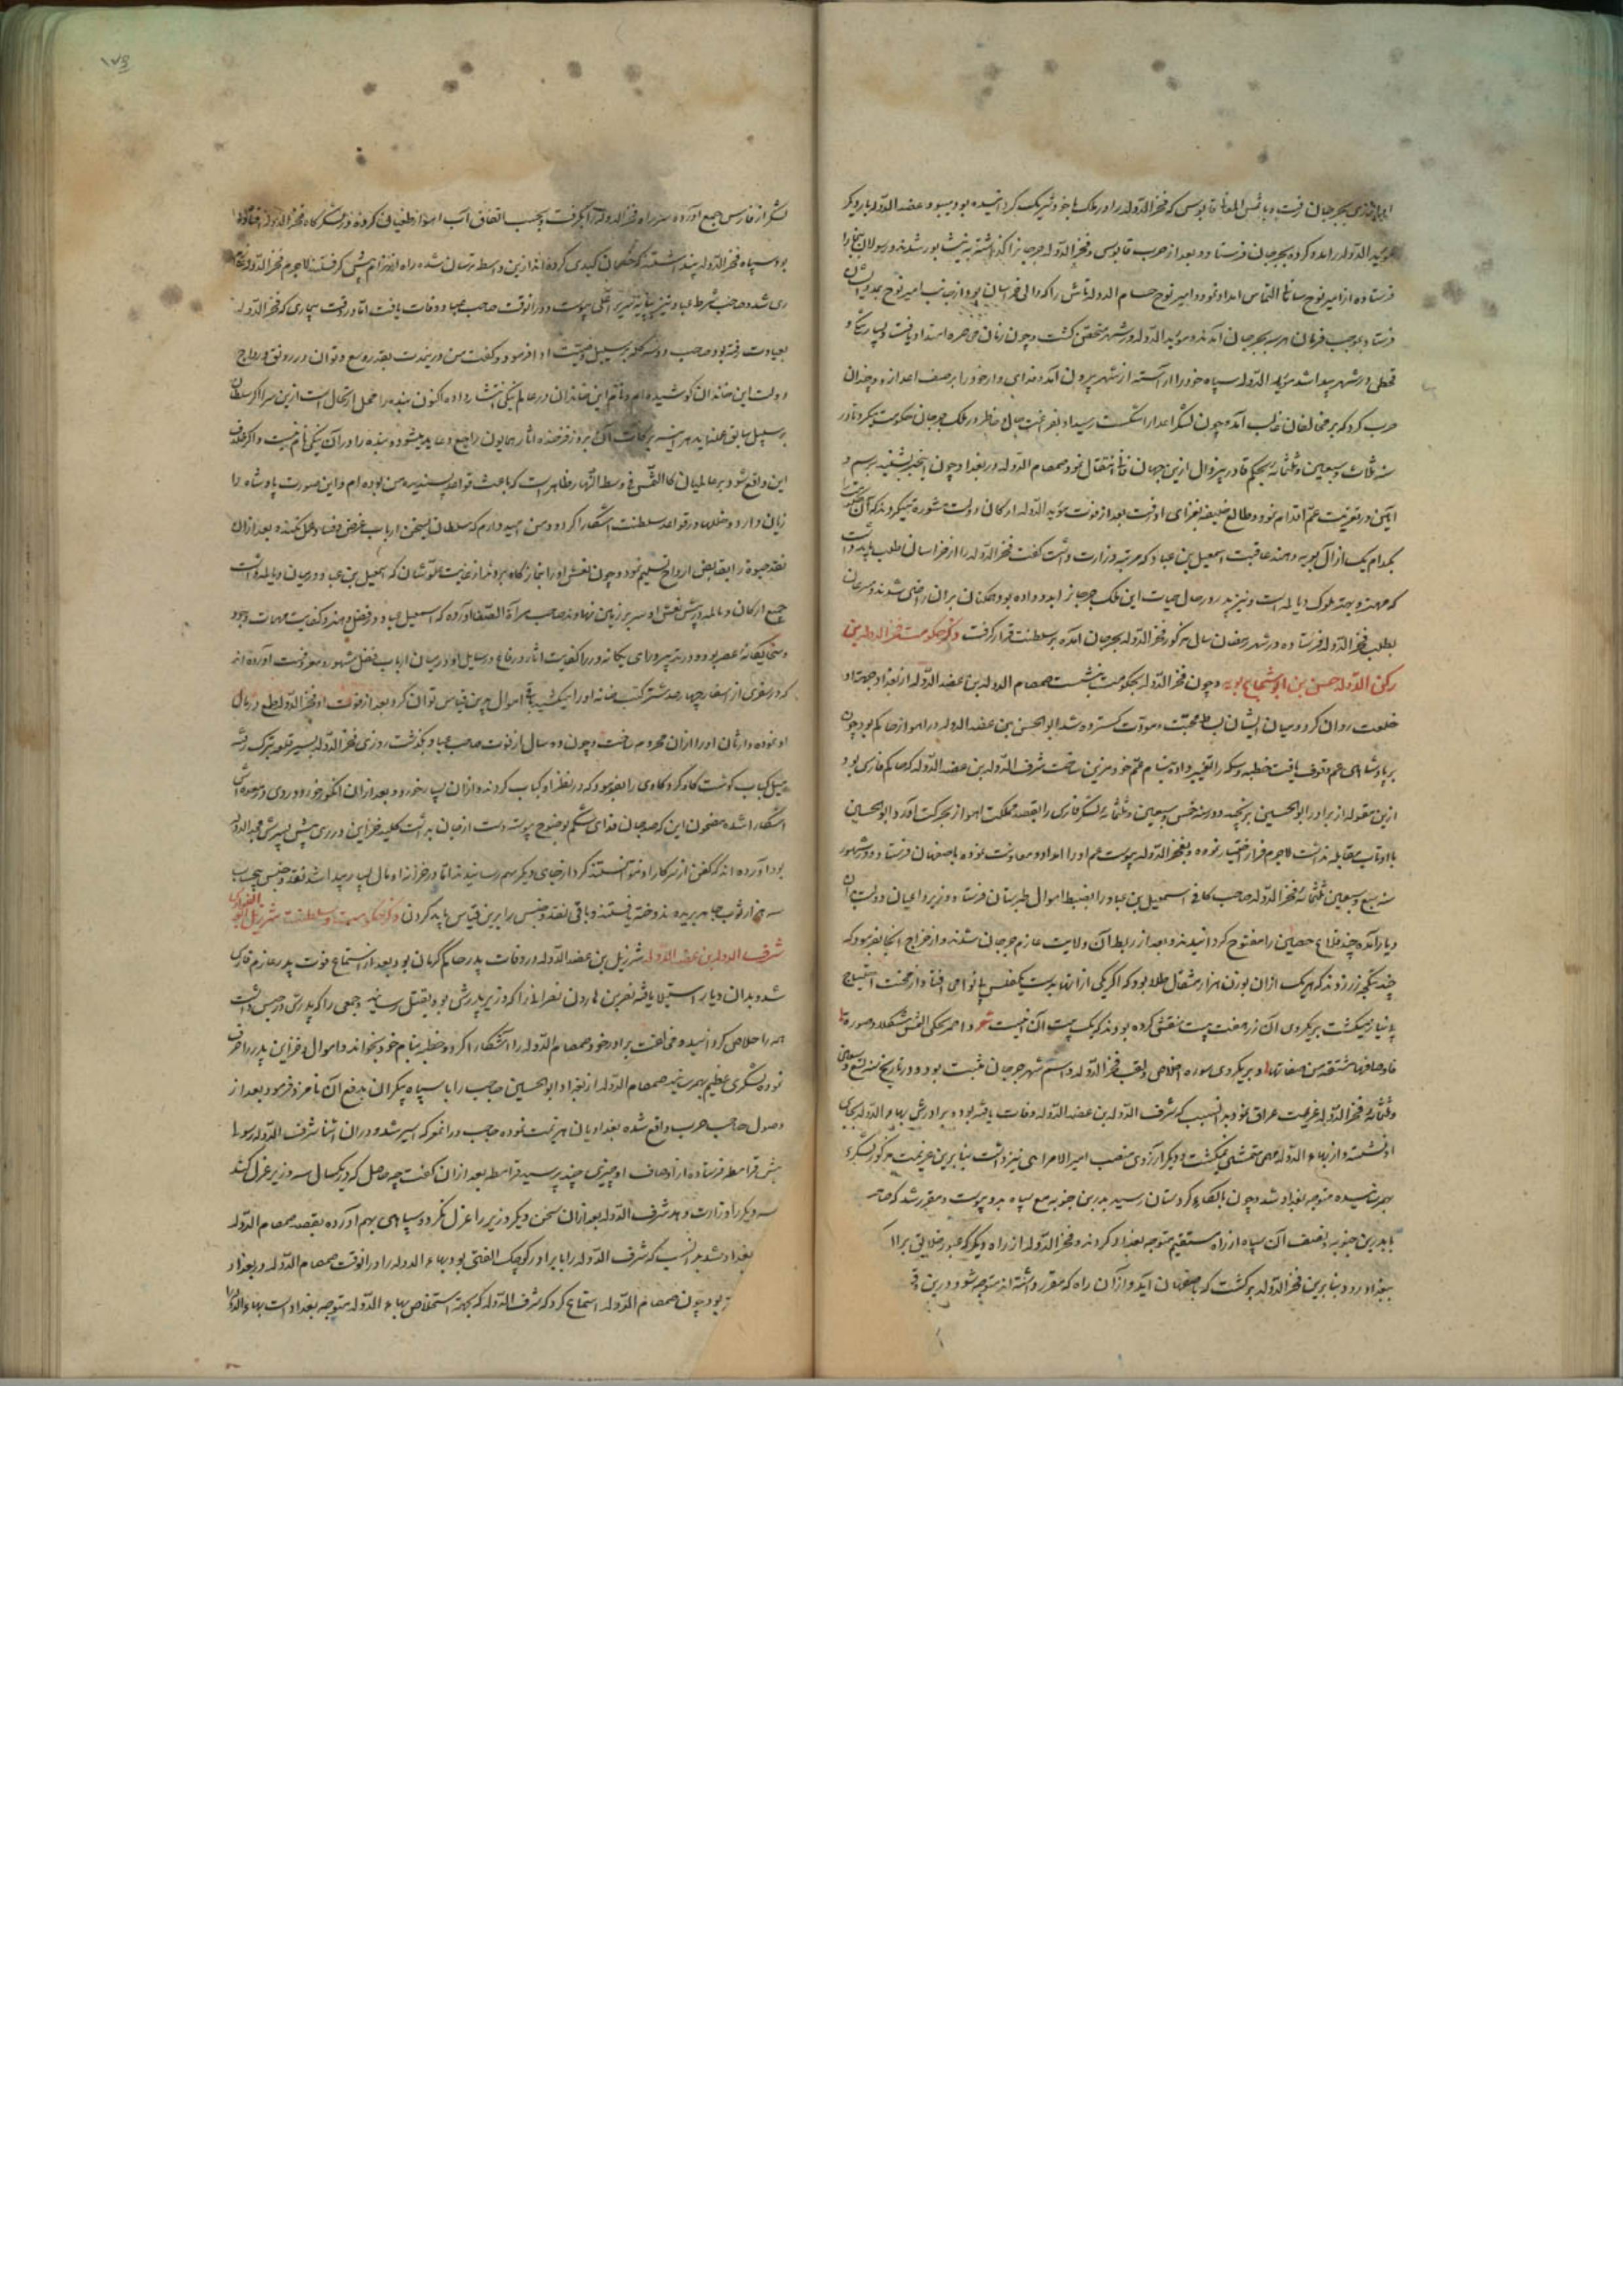 فخرالدوله را در ملک با خود شریک گردانیده بود و عضدالدوله بار دیگر
مؤیدالدوله را مدد کرده بجرجان فرستاد و بعد از حرب قابوس و فخرالدوله جرجان را گذاشته به نیشابور شدند و رسولان به بخارا
فرستاده از امیر نوح سامانی التماس امداد نمود و امیر نوح حسام الدوله تاش را که والی خراسان بود
فرستاد بموجب فرمان هر سه بجرجان آمدند و مؤیدالدوله در شهر متحصن گشت و چون زمان محاصره امتداد یافت
قحطی در شهر پیدا شد مؤیدالدوله سپاه خود را آراسته از شهر بیرون آمد و خود را بر صف اعدا زد و چندان
حرب کرد که بر مخالفان غالب آمد و چون لشکر اعدا را شکست رسید او بفراغت بال و خاطر در ملک جرجان حکومت میکرد تا در
سنه ثلاث و سبعین و ثلثمائه بحکم قادر بیزوال ازین جهان فانی انتقال نمود صمصام الدوله در بغداد چون این خبر بشنید برسم
و آیین در تعزیت عم اقدام نمود و طالع خلیفه بعزای او رفت بعد از فوت مؤیدالدوله ارکان دولت مشورت میکردند که
کدام یک از آل بویه دهند عاقبت اسمعیل بن عباد که مرتبه وزارت داشت گفت فخرالدوله را از خراسان طلب باید داشت
که مهتر و بهتر ملوک دیالمه است و نیز پدر در حال حیات این ملک جرجان را بدو داده بود همکنان بران راضی شدند
بطلب فخرالدوله فرستاده در شهر رمضان سال مذکور فخرالدوله بجرجان آمده بسلطنت قرار گرفت ذکر حکومت فخرالدوله بن
رکن الدوله حسن بن ابو شجاع بویه و چون فخرالدوله بحکومت بنشست صمصام الدوله بن عضدالدوله از بغداد جهت او
خلعت روان کرد و میان ایشان بساط محبت و مودت گسترده شد ابو الحسین بن عضدالدوله در اهواز حاکم بود چون
بر پادشاهی عم وقوف یافت خطبه و سکه را تغییر داده بنام عم خود مزین ساخت شرف الدوله بن عضدالدوله که حاکم فارس بود
ازین مقوله از برادر ابو الحسین برنجید و در سنه خمس و سبعین و ثلثمائه لشکر فارس را بقصد مملکت اهواز بحرکت آورد و ابو الحسین
تاب مقابله نداشت لاجرم فرار اختیار نموده بفخرالدوله پیوست عم او را امداد و معاونت نموده باصفهان فرستاد و در شهور
سنه سبع و سبعین و ثلثمائه فخرالدوله صاحب کافی اسمعیل بن عباد را بضبط اموال طبرستان فرستاد و وزیر و اعیان دولت
دیار آمده چند قلاع حصین را مفتوح گردانیدند و بعد از ربط آن ولایت عازم جرجان شدند و از خراج آنجا بفرمود که
زر زدند که هر یک ازان بوزن هزار مثقال طلا بود که اگر یکی از آنها بدست مفلس بانوامی افتاد از محنت احتیاج
بی نیاز میگشت بر یکروی آن زر هفت بیت منقش کرده بودند که یک بیت آن اینست شعر و احمر یحکی الشمس شکلا و صورة
فاوصافها مشتقه من صفاتها و بر یکروی سوره اخلاص و لقب فخرالدوله و اسم شهر جرجان مثبت بود و در تاریخ سنه تسع و سبعین
و ثلثمائه فخرالدوله عزیمت عراق نمود بدان سبب که شرف الدوله بن عضدالدوله وفات یافته بود و برادرش بهاء الدوله بجای
او نشسته و از بهاء الدوله مهمی متمشی نمیگشت و دیگر آرزوی منصب امیرالامرایی نیز داشت بنابرین عزیمت مذکور لشکر
بهم رسانیده متوجه بغداد شد و چون بالکاء کردستان رسید بدر بن حسنویه مع سپاه بدو پیوست و مقرر شد که
با بدر بن حسنویه و نصف آن سپاه از راه مستقیم متوجه بغداد گردند و فخرالدوله از راه دیگر که عبور خلایق بر آن
بغداد رود و بنابرین فخرالدوله برگشت که باصفهان آید و از آن راه که مقرر داشته اند متوجه شود و درین وقت
لشکر از فارس جمع آورده سر راه فخرالدوله را بگرفت و بحسب اتفاق آب اهواز طغیان کرده در لشکرگاه فخرالدوله افتاد
بود سپاه فخرالدوله پنداشتند که خصمان کیدی کرده اند ازین واسطه ترسان شده راه انهزام پیش گرفتند لاجرم فخرالدوله
ری شد و صاحب بن عباد نیز و در آن وقت صاحب عباد وفات یافت اما در وقت بیماری که فخرالدوله
بعیادت رفته بود صاحب دو سه کلمه بر سبیل وصیت ادا فرمود و گفت من در ینمدت بقدر وسع و توان در رونق و رواج
دولت این خاندان کوشیده ام و نام این خاندان در عالم بنیکی انتشار داده اکنون بنده را محل ارتحال است ازین سرا اگر سلطان
بر سبیل سابق عمل نماید هر آینه برکات آن بروزگار فرخنده آثار همایون راجع و عاید میشود و بنده را در آن نیکی نام نیست و اگر خلاف
این واقع شود بر عالمیان کالشمس فی وسط النهار ظاهر است که باعث قواعد پسندیده من بوده ام و این صورت پادشاه را
زیان دارد و خللها در قواعد سلطنت آشکارا گردد و من امید دارم که سلطان بسخن ارباب غرض و فساد عمل نکند و بعد از آن
نقد حیوة را بقابض ارواح تسلیم نمود و چون نعش او را بنمازگاه بردند از غایت علو شان که اسمعیل بن عباد در میان دیالمه داشت
جمیع ارکان دیالمه در پیش نعش او سر بر زمین نهادند صاحب مرآة الصفا آورده که اسمعیل عباد در فضل و هنر و کفایت مهمات و جود
و سخا یگانه عصر بود و در تدبیر و رای بیگانه و در کفایت آثار رقاع و رسایل او در میان ارباب فضل مشهور و معروفست آورده اند
که در سفری از اسفار چهار صد شتر کتب خانه او را میکشید باقی اموال برین قیاس توان کرد و بعد از فوت او فخرالدوله طمع در مال
او نموده وارثان او را از آن محروم ساخت و چون ده سال از فوت صاحب عباد بگذشت روزی فخرالدوله بسیر قلعه تبرک رفته
میل کباب گوشت گاو کرد گاوی را بفرمود که در نظر او کباب کردند و از آن بسیار خورد و بعد از آن انگور خورد و درد
آشکارا شده مضمون این که صد جان فدای شکم بوضوح پیوسته دست از جان برداشت کلید خزاین در ری پیش پسرش مجدالدوله
بود آورده اند که کفن از سرکار او نتوانستند کرد از جای دیگر بهم رسانیدند اما در خزانه او مال بسیار پیدا شد نقد و جنس
سه هزار ثوب جامه بریده و دوخته یافتند و باقی نقد و جنس را برین قیاس باید کردن ذکر حکومت و سلطنت شرزیل ابو الفوارس
شرف الدوله بن عضدالدوله شرزیل بن عضدالدوله در وفات پدر حاکم کرمان بود بعد از استماع فوت پدر عازم فارس
شد و بدان دیار استیلا یافته نصر بن هارون نصرانی را که وزیر پدرش بود بقتل رسانید و جمعی را که پدرش در حبس داشت
همه را خلاص گردانیده مخالفت برادر خود صمصام الدوله را آشکارا کرد و خطبه بنام خود بخواند و اموال و خزاین پدر را صرف
نموده لشکری عظیم بهم رسانید صمصام الدوله از بغداد ابو الحسین حاجب را با سپاه بیکران بدفع آن نامزد فرمود بعد از
وصول حاجب حرب واقع شده بغدادیان هزیمت نموده حاجب در آن معرکه اسیر شد و در آن اثنا شرف الدوله رسولی
پیش قرامطه فرستاده از اوصاف او چیزی چند پرسید قرامطه بعد از آن گفت چه حاصل که در یکسال سه وزیر عزل کند
سه دیگر را وزارت دهد شرف الدوله بعد از آن سخن دیگر وزیر را عزل نکرد و سپاهی بهم آورده بقصد صمصام الدوله
بغداد شد بدان سبب که شرف الدوله را با برادر کوچک الفتی بود بهاء الدوله را و در آن وقت صمصام الدوله در بغداد
بود چون صمصام الدوله استماع کرد که شرف الدوله که بجهة استخلاص بهاء الدوله متوجه بغداد است بهاء الدوله را